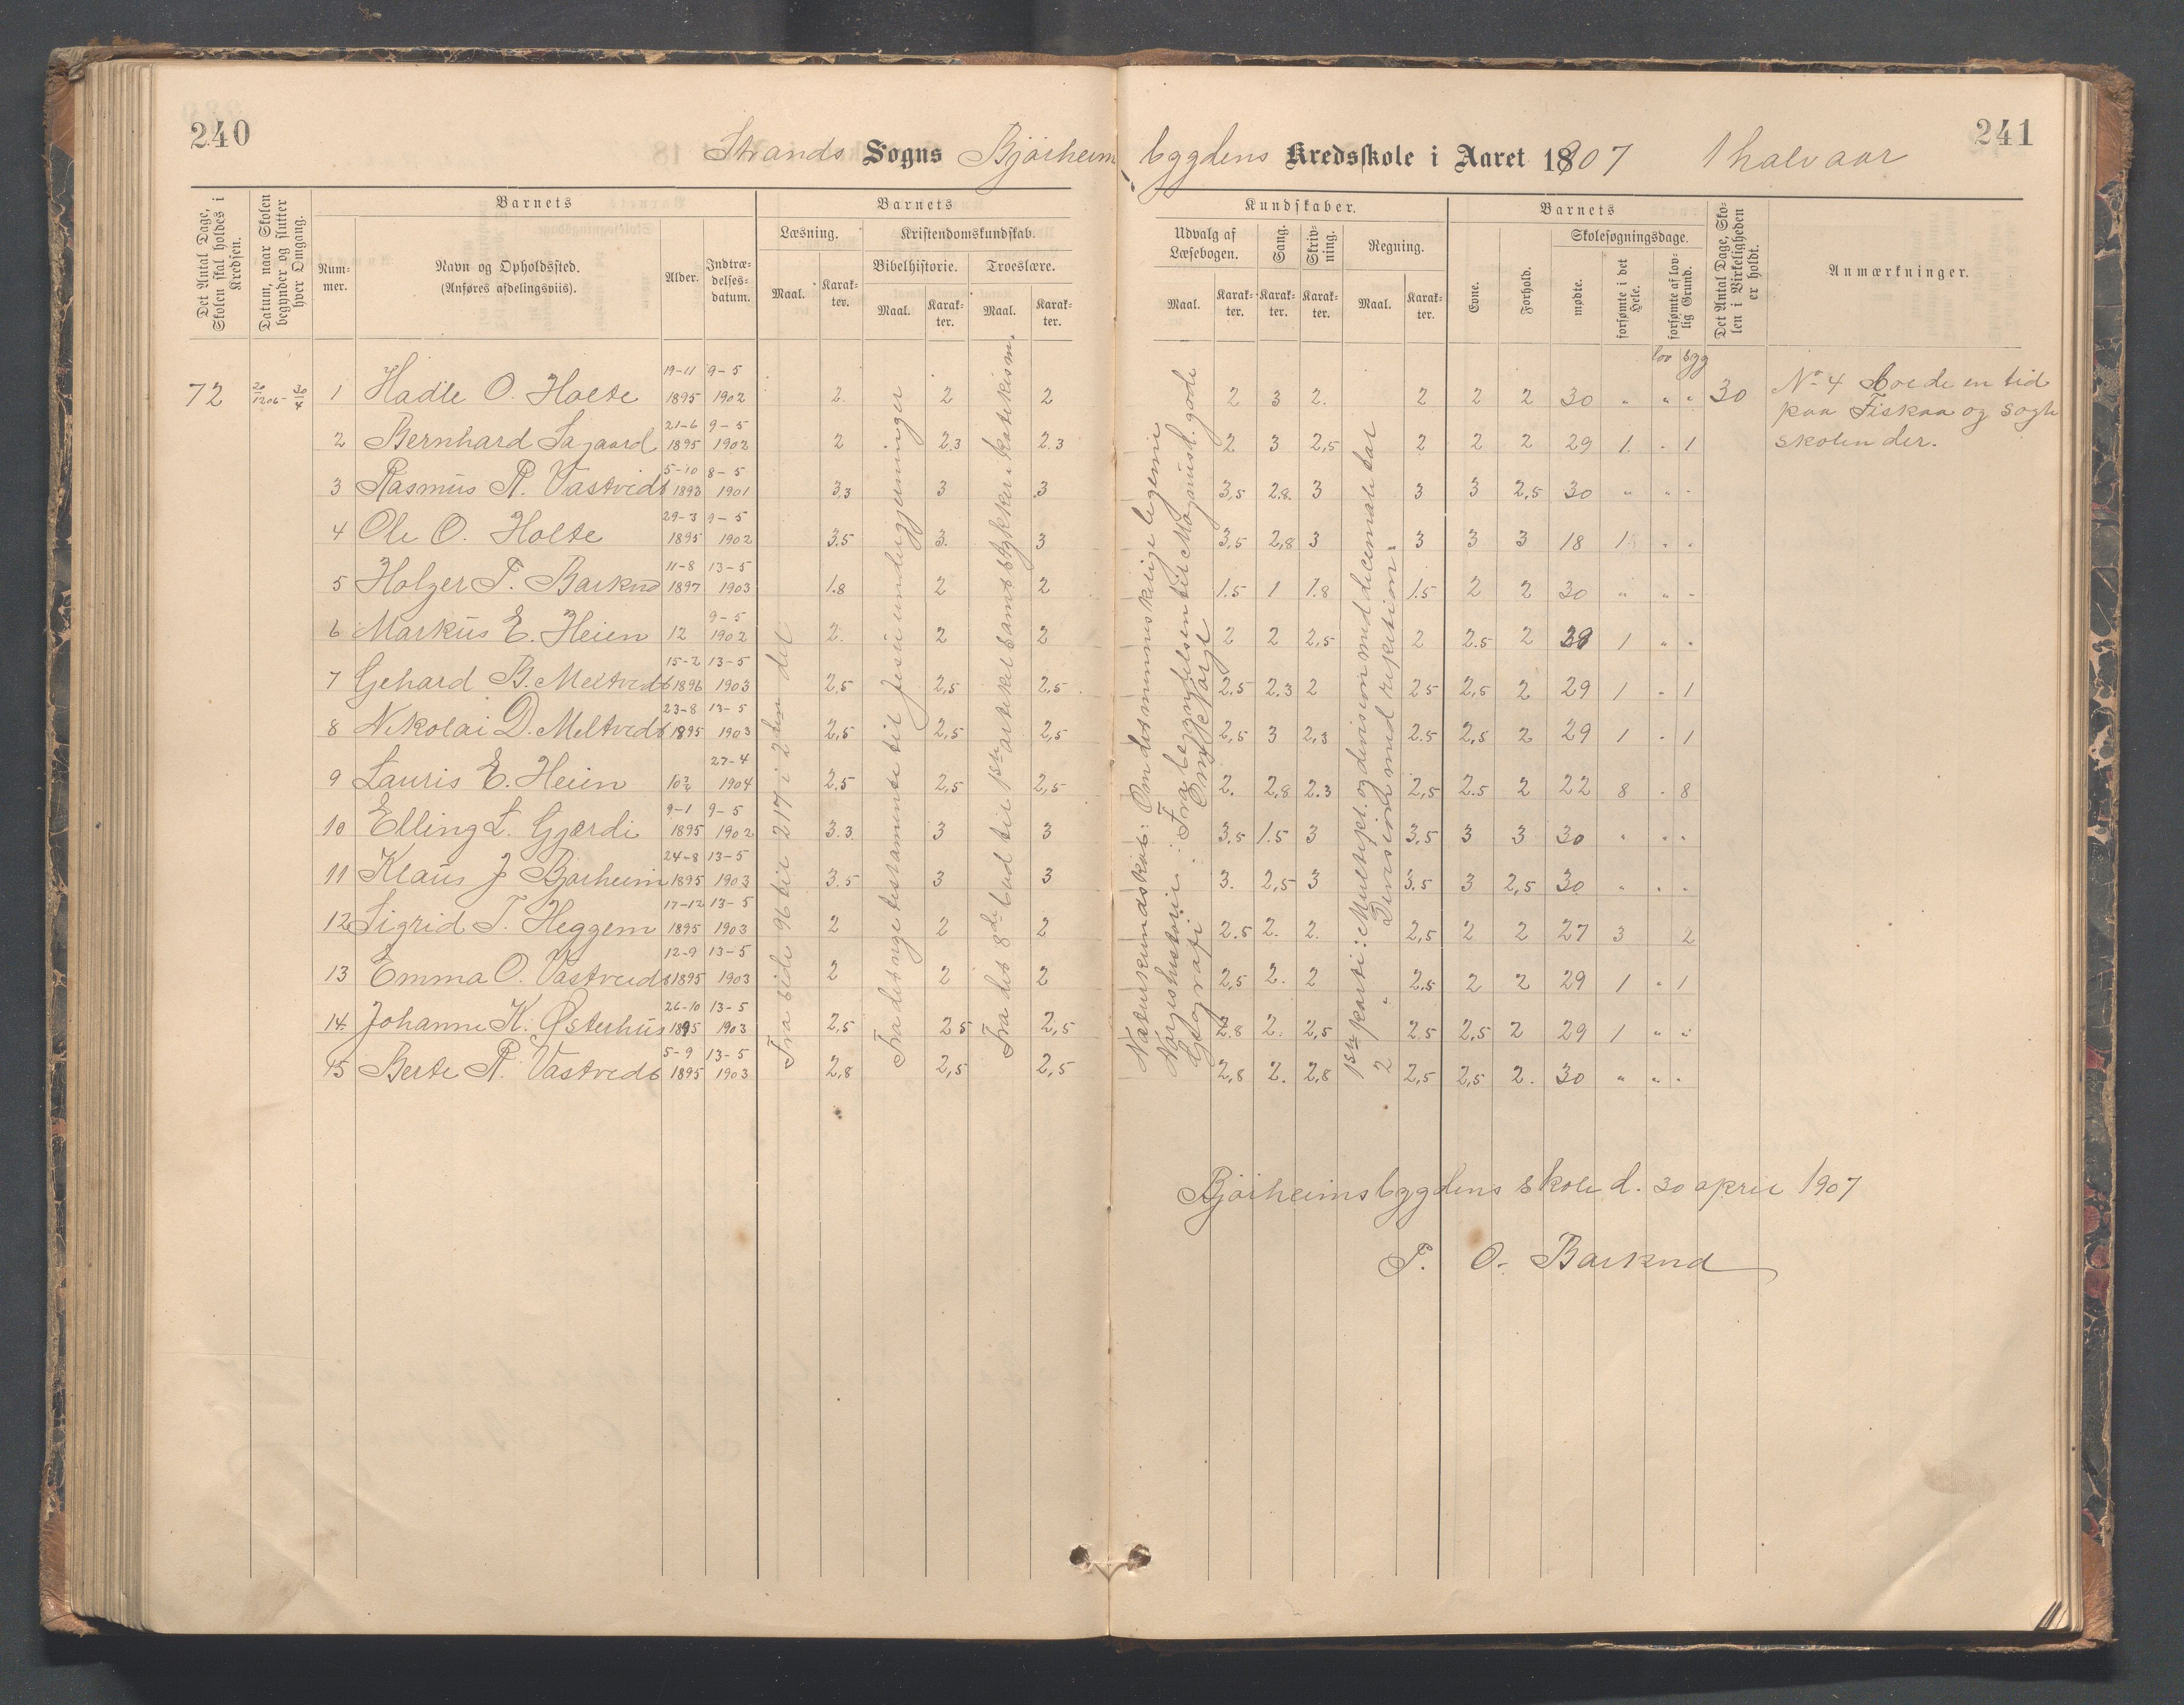 240
241
Strands Sogns Bjørheims bygdens Kredsskole i Aaret 1907 1 halvaar
Det Antal Dage, Skolen skal holdes i Kredsen.
Datum, naar Skolen begynder og slutter hver Omgang.
Barnets
Nummer.
Navn og Opholdssted.
(Anføres afdelingsviis).
Alder.
Indtrædelsesdatum.
Barnets
Læsning.
Maal.
Karakter.
Kristendomskundskab.
Bibelhistorie.
Maal.
Karakter.
Troeslære.
Maal.
Karakter.
Kundskaber.
Udvalg af Læsebogen.
Maal.
Karakter.
Sang.
Karakter.
Skrivning.
Karakter.
Regning.
Maal.
Karakter.
Barnets
Evne.
Forhold.
Skolesøgningsdage.
mødte.
forsømte i det Hele.
forsømte af lovlig Grund.
Det Antal Dage, Skolen i Virkeligheden er holdt.
Anmærkninger.
lov syg
72 20/12 06- 30/4 1 Hadle O. Holte 19-11 1895 9-5 1902 2. 2 2 2 3 2. 2 2 2 30 " " " 30
2 Bernhard Lagaard 21-6 1895 9-5 1902 2 2.3 2.3 2 3 2,5 2 2 2 29 1. - 1
3 Rasmus R. Vastvedt 5-10 1893 8-5 1901 3,3 3 3 3,5 2.8. 3 3 3 2,5 30 " " -
4 Ole O. Holte 29-3 1895 9-5 1902 3.5 3. 3 3,5 2,8 3 3 3 3 18 1 - -
5 Holger T. Barknd 11-8 1897 13-5 1903 1.8 2 2 1.5 1 1.8 1.5 2 2 30 " " -
6 Markus E. Heien 12 9-5 1902 2. 2 2 2 2 2,5 2 2.5 2 29 1 " -
7 Gehard B. Meltvedt 15-2 1896 13-5 1903 2,5 2,5 2,5 2,5 2.3 2 2.5 2,5 2 29 1 - 1
8 Nikolai D. Meltvedt 23-8 1895 13-5 1903 2,5 2,5 2,5 2,5 3 2,3 2.5 2,5 2 29 1 - 1
9 Lauris E. Heien 10½ 27-4 1904 2.5 2,5 2,5 2. 2,8 2.3 2,5 2.5 2 22 8 - 8
10 Elling L. Gjærdi 9-1 1895 9-5 1902 3.3 3 3 3,5 1.5 3 3,5 3 3 30 " " "
11 Klaus J Bjørheim 24-8 1895 13-5 1903 3.5 3 3 3. 2,5 3 3.5 3 2,5 30 - - -
12 Sigrid T. Heggem 17-12 1895 13-5 1903 2 2 2 2.5 2. 2. 2,5 2 2 27 3 2
13 Emma O. Vastvedt 12-9 1895 13-5 1903 2 2 2 2,5 2. 2 2.5 2 2 29 1 " 1
14. Johanne K. Østerhus 26-10 1895 13-5 1903 2,5 2 5 2,5 2.8 2. 2,5 2.5 2,5 2 29 1 " "
15 Berte R. Vastvedt 5-9 1895 13-5 1903 2,8 2,5 2,5 2,8 2. 2,8 2,5 2,5 2. 30 " " -
Fra side 96 til 217 i 2den del
Fra det nye testamente til Jesu undergjerninger
Fra det 8de bud til 1ste artikel samt stykker i katekism.
Naturkundskab: Om det menneskelige legeme
Norgeshistorie: Fra begyndelsen til Magnus d. gode
Geografi Omgjeforgt
1ste parti: Multipl. og division med decimaltal
2 " Division med repetition.
No 4 boede en tid
paa Fiskaa og søgte
skolen der.
Bjørheimsbygdens skole d. 30 april 1907
T. O. Barknd